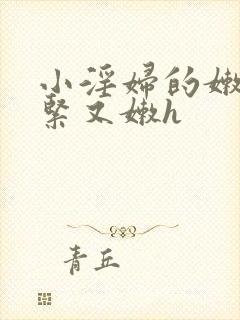 小淫婦的嫩
緊又嫩h
青丘